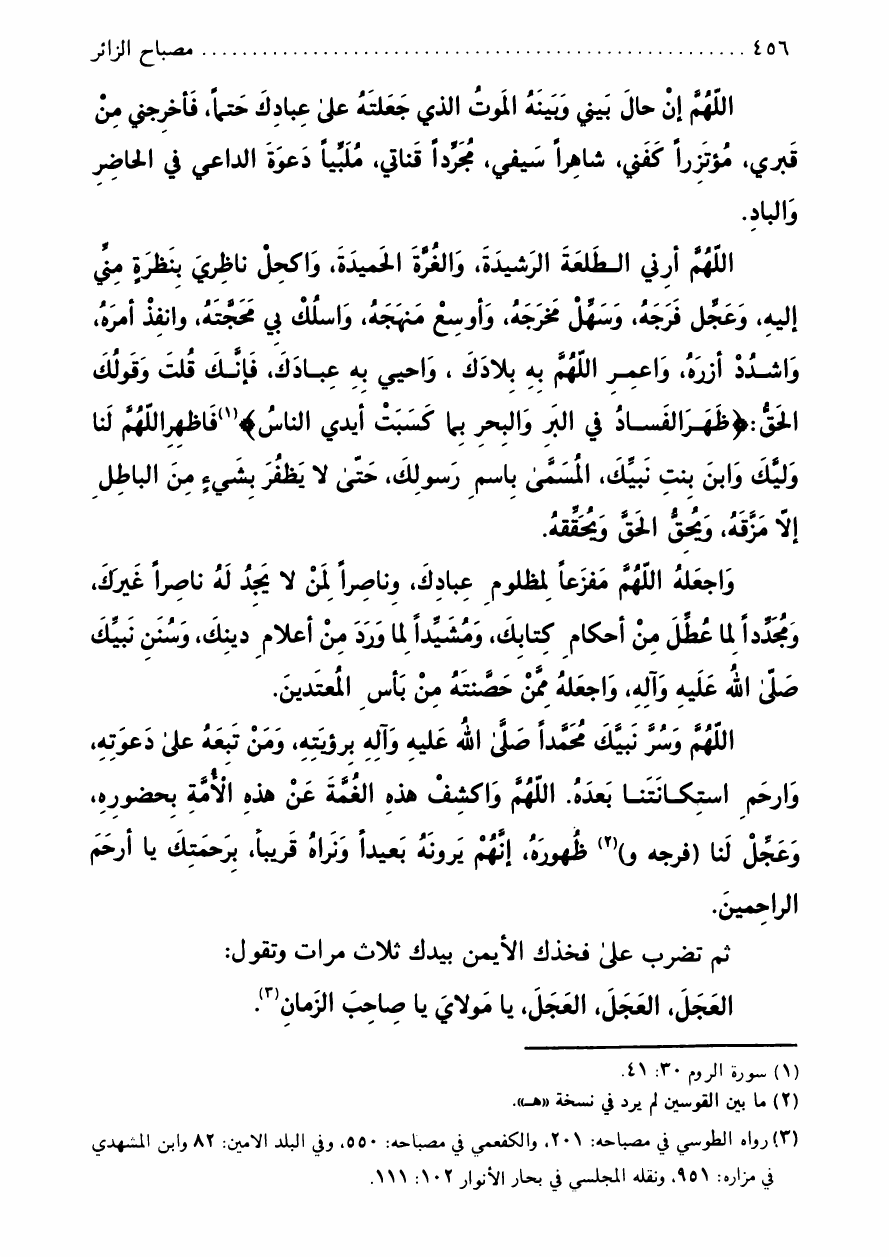 ٤٥٦ ..................................................... مصباح الزائر
اللّهُمَّ إنْ حالَ بَيني وَبَينَهُ المَوتُ الذي جَعَلتَهُ علىٰ عِبادِكَ حَتماً، فَأخرِجني مِنْ
قَبري، مُؤتَزِراً كَفَني، شاهِراً سَيفي، مُجَرِّداً قَناتي، مُلَبِّياً دَعوَةَ الداعي في الحاضِرِ
وَالبادِ.
اللّهُمَّ أرني الـطَلعَةَ الرَشيدَةَ، وَالغُرَّةَ الحَميدَةَ، وَاكحِلْ ناظِريَ بِنَظرَةٍ مِنِّي
إليهِ، وَعَجِّل فَرَجَهُ، وَسَهِّلْ مَخرَجَهُ، وَأوسِعْ مَنهَجَهُ، وَاسلُكْ بي مَحَجَّتَهُ، وانفِذْ أمرَهُ،
وَاشـدُدْ أزرَهُ، وَاعمِـرِ اللّهُمَّ بِهِ بِلادَكَ ، وَاحيي بِهِ عِبـادَكَ، فَإنَّـكَ قُلتَ وَقَولُكَ
الحَقُّ:﴿ظَهَـرَالفَسـادُ في البَرِ وَالبحرِ بِما كَسَبَتْ أيدي الناسُ﴾(١)فَاظهِرِاللّهُمَّ لَنا
وَليَّكَ وَابنَ بِنتِ نَبيِّكَ، المُسَمَّىٰ بِاسمِ رَسولِكَ، حَتّىٰ لا يَظفُرَ بِشَيءٍ مِنَ الباطِلِ
إلاّ مَزَّقَهُ، وَيُحِقُّ الحَقَّ وَيُحَقِّقهُ.
وَاجعَلهُ اللّهُمَّ مَفزَعاً لِمظلومِ عِبادِكَ، وناصِراً لِمَنْ لا يَجِدُ لَهُ ناصِراً غَيرَكَ،
وَمُجَدِّداً لِما عُطِّلَ مِنْ أحكامِ كِتابِكَ، وَمُشَيِّداً لِما وَرَدَ مِنْ أعلامِ دينِكَ، وَسُنَنِ نَبيِّكَ
صَلّىٰ اللهُ عَلَيهِ وَآلِهِ، وَاجعَلهُ مِمَّنْ حَصَّنتَهُ مِنْ بَأسِ المُعتَدينَ.
اللّهُمَّ وَسُرَّ نَبيَّكَ مُحَمَّداً صَلَّىٰ اللهُ عَليهِ وَآلِهِ بِرؤيَتِهِ، وَمَنْ تَبِعَهُ علىٰ دَعوَتِهِ،
وَارحَمِ استِكـانَتَنـا بَعدَهُ. اللّهُمَّ وَاكشِفْ هذهِ الغُمَّةَ عَنْ هذِهِ الْأُمَّةِ بِحضورِهِ،
وَعَجِّلْ لَنا (فرجه و)(٢) ظُهورَهُ، إنَّهُمْ يَرونَهُ بَعيداً وَنَراهُ قَريباً، بِرَحمَتِكَ يا أرحَمَ
الراحِمينَ.
ثم تضرب علىٰ فخذك الأيمن بيدك ثلاث مرات وتقول:
العَجَلَ، العَجَلَ، العَجَلَ، يا مَولايَ يا صاحِبَ الزَمانِ(٣).
(١) سورة الروم ٣٠: ٤١.
(٢) ما بين القوسين لم يرد في نسخة «هـ».
(٣) رواه الطوسي في مصباحه: ٢٠١، والكفعمي في مصباحه: ٥٥٠، وفي البلد الامين: ٨٢ وابن المشهدي
في مزاره: ٩٥١، ونقله المجلسي في بحار الأنوار ١٠٢: ١١١.